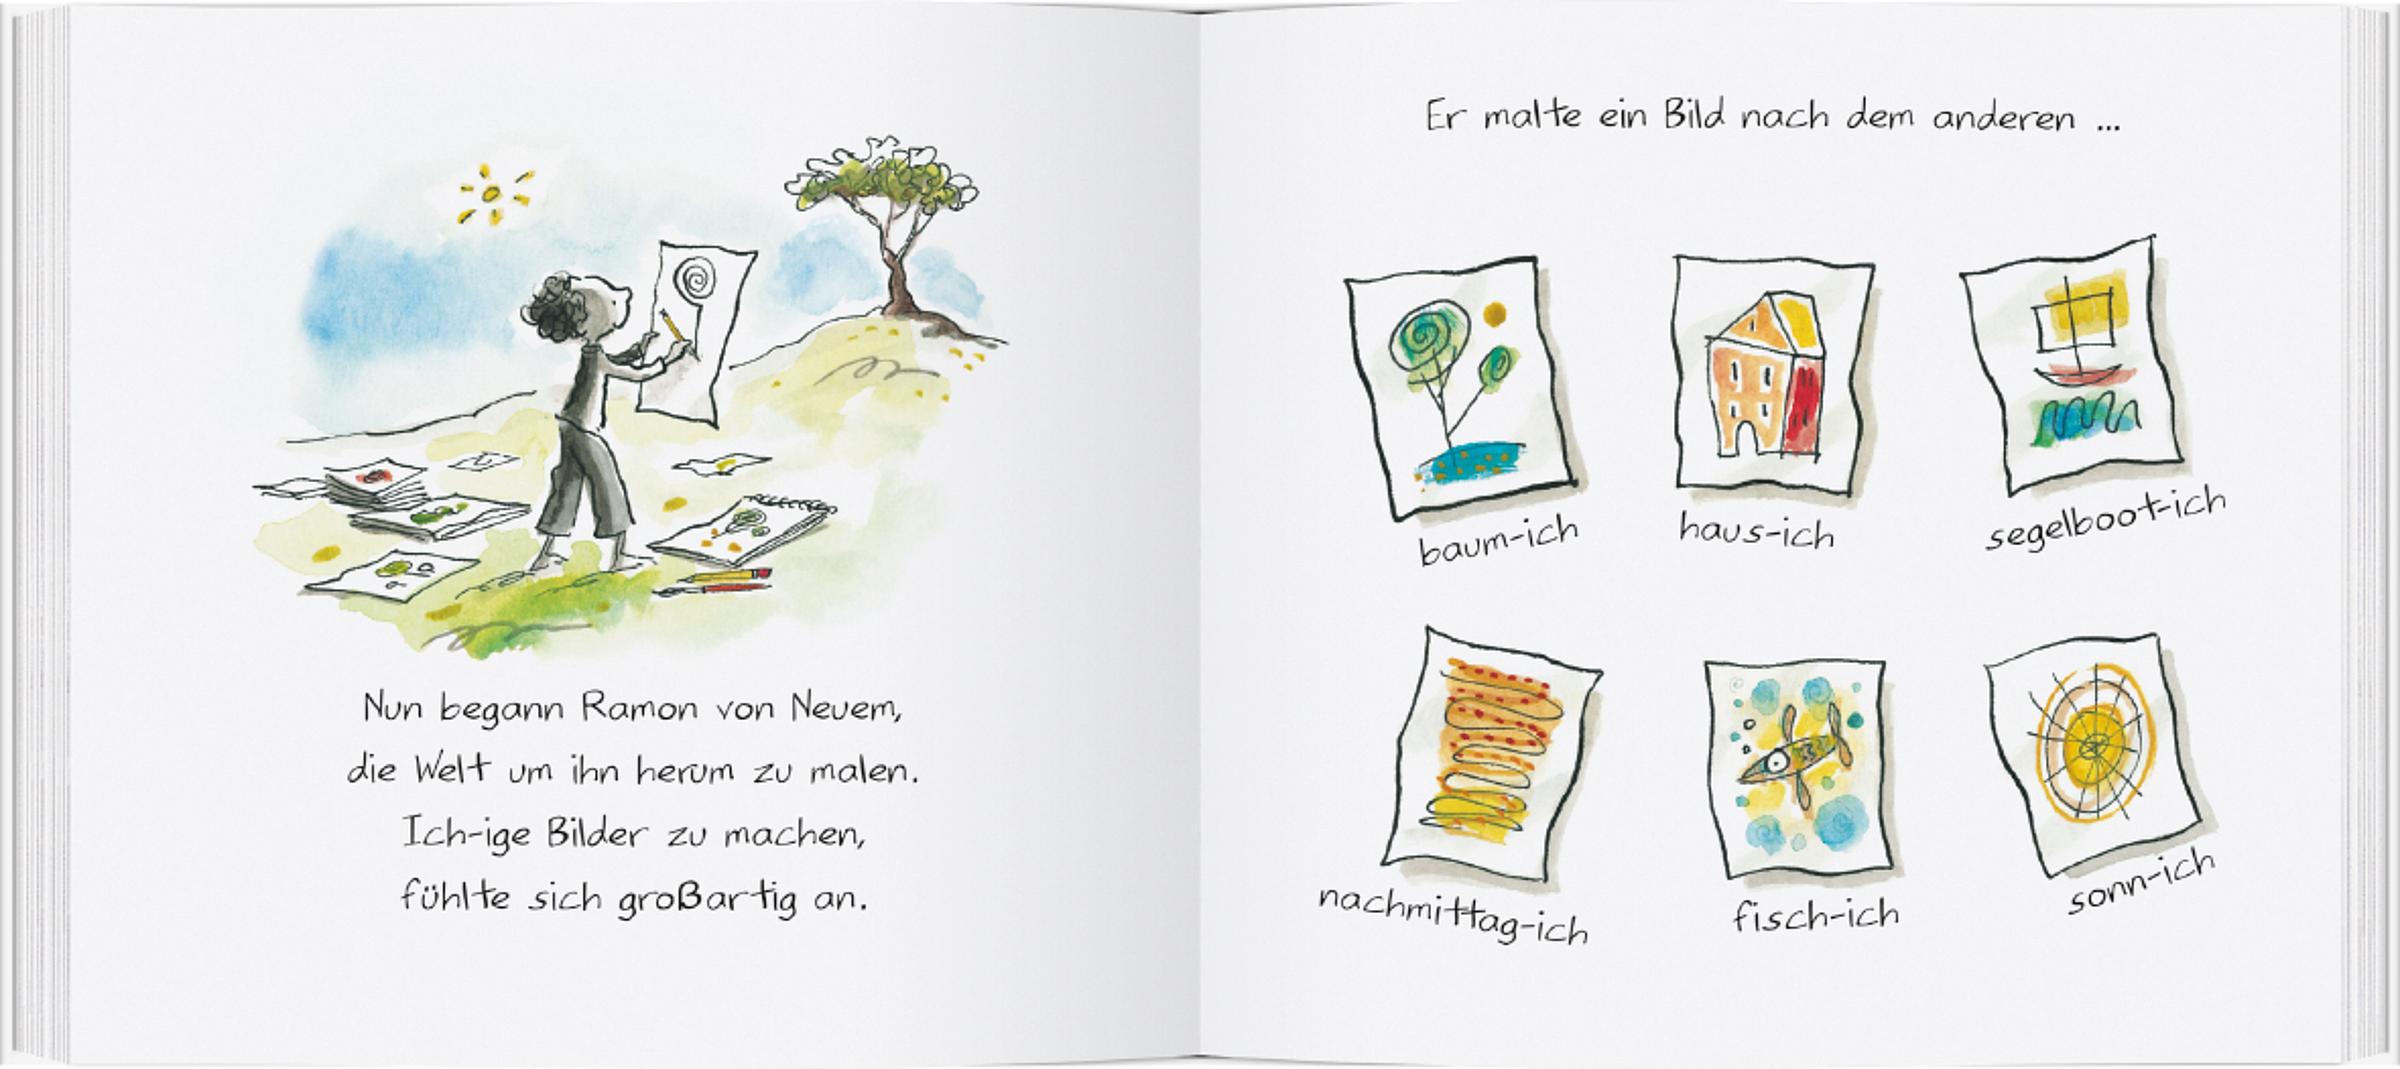 Nun begann Ramon von Neuem,
die Welt um ihn herum zu malen.
Ich-ige Bilder zu machen,
fühlte sich großartig an.
Er malte ein Bild nach dem anderen ...
baum-ich
haus-ich
segelboot-ich
nachmittag-ich
fisch-ich
sonn-ich